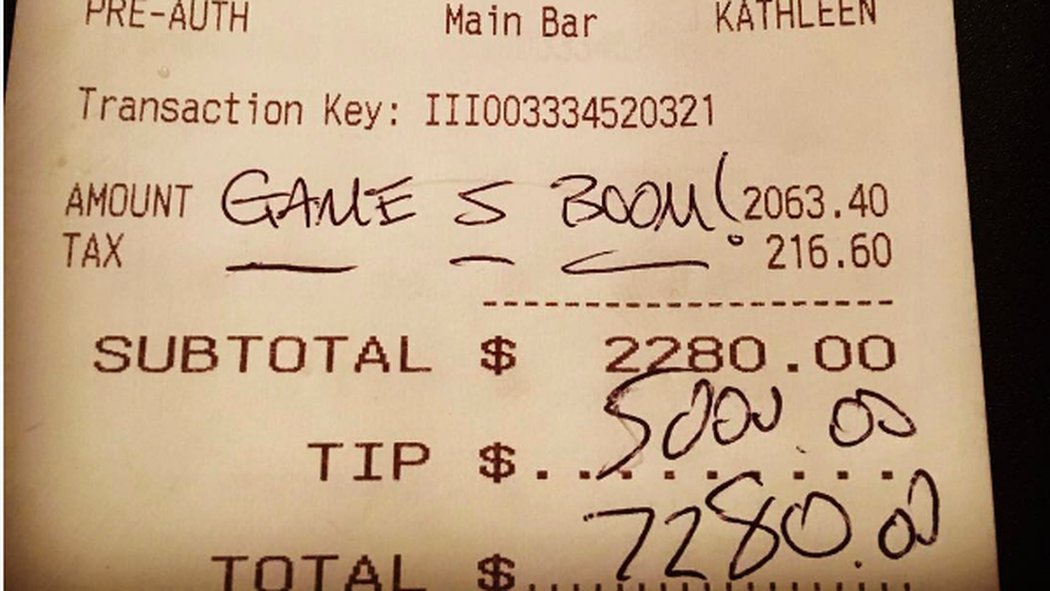 PRE-AUTH Main Bar KATHLEEN
Transaction Key: III003334520321
AMOUNT GAME 5 BOOM! 2063.40
TAX 216.60
--------------------
SUBTOTAL $ 2280.00
TIP $ 5000.00
TOTAL $ 7280.00